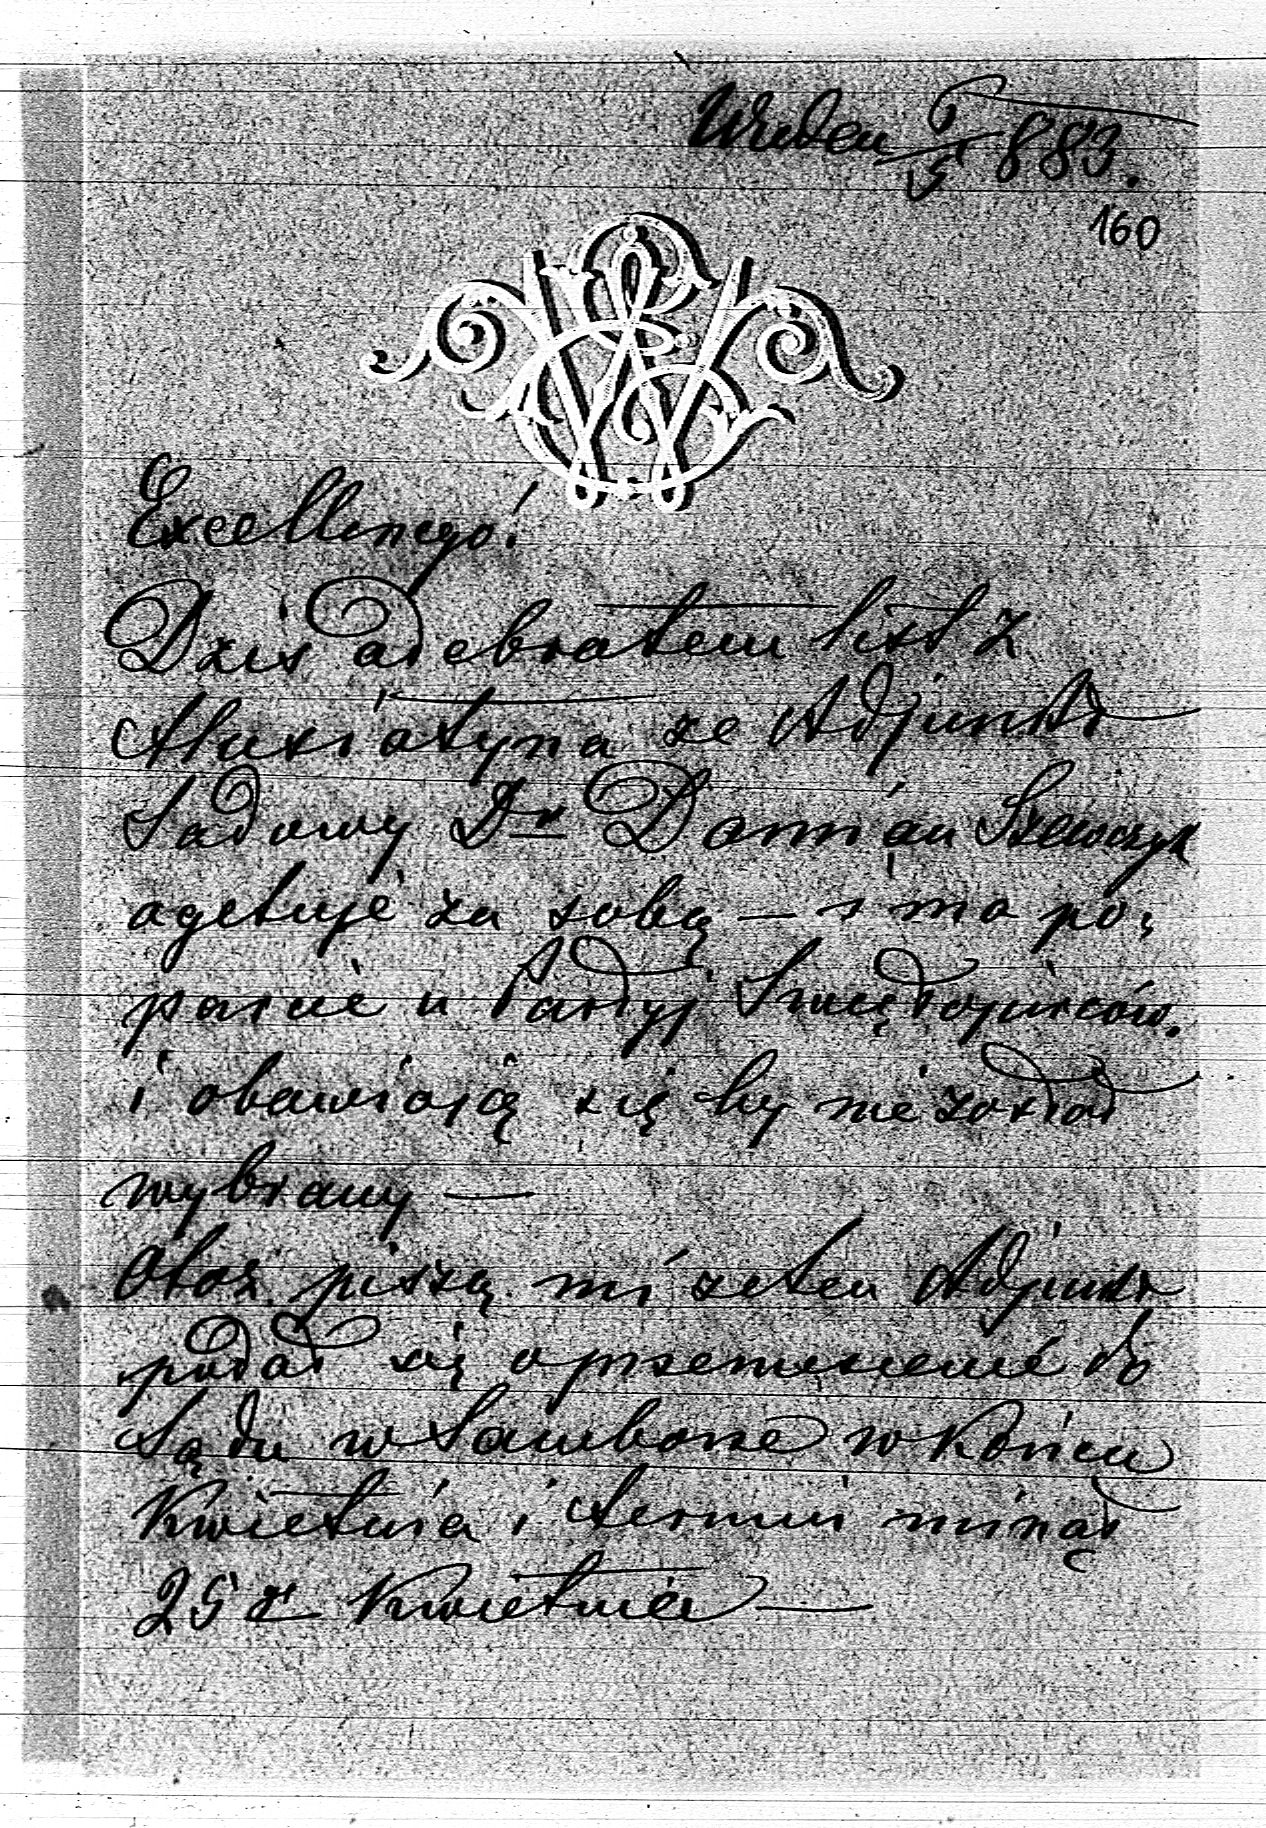 Wieden 1/5 883.
160
Excellencyo!
Dziś odebrałem list z
Sniatyna ze Adjunkt
Sadowy Dr Damian Szewczyk
agetuje za sobą — i ma po„
parcie u Partyj Swiętojurców.
i obawiają się by nie został
wybrany —
Otoż piszą mi ze ten Adjunkt
podał się o przeniesienie do
Sądu w Samborze w Końcu
Kwietnia i termin minął
25 Kwietnia —